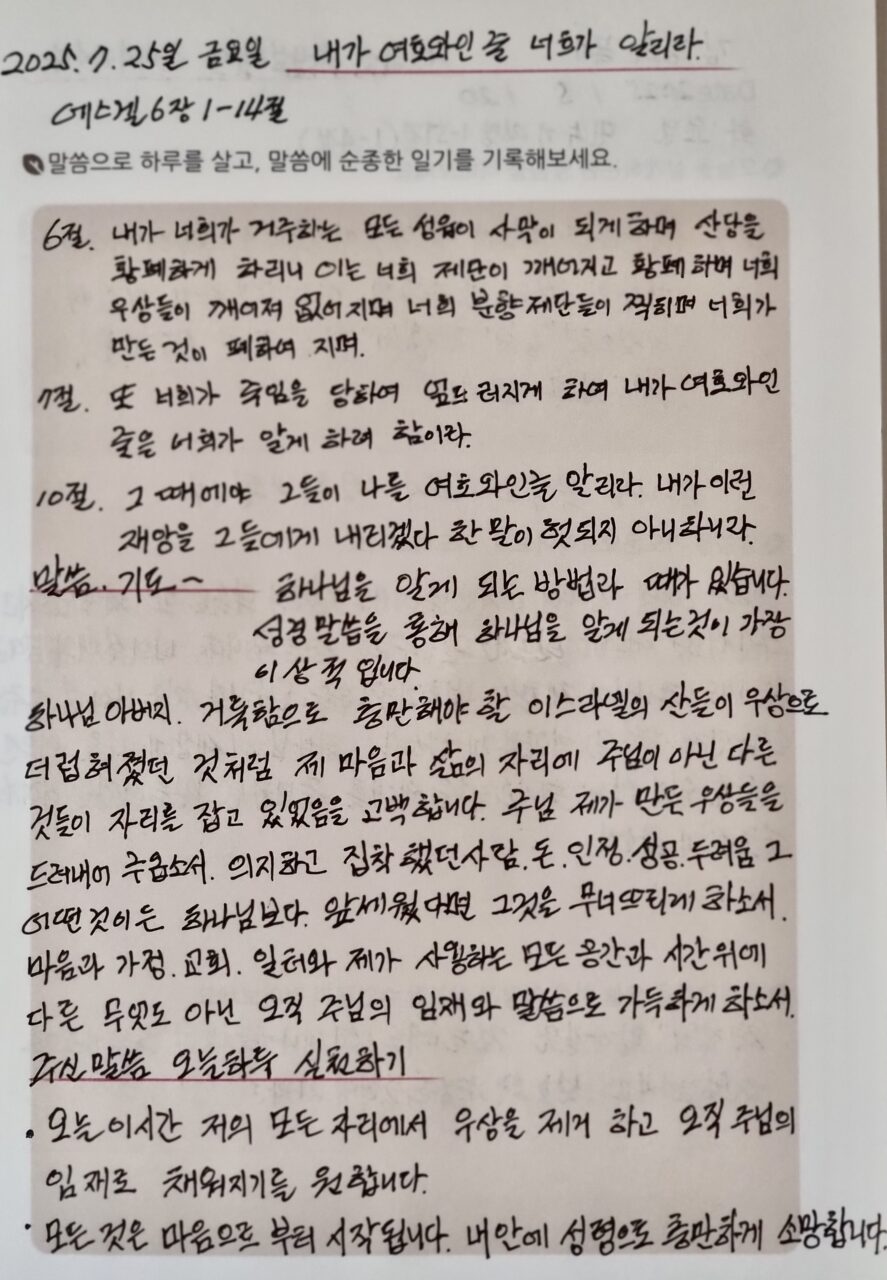 2025. 7. 25일 금요일 내가 여호와인 줄 너희가 알리라.
에스겔 6장 1-14절
말씀으로 하루를 살고, 말씀에 순종한 일기를 기록해보세요.
6절. 내가 너희가 거주하는 모든 성읍이 사막이 되게 하며 산당을
황폐하게 하리니 이는 너희 제단이 깨어지고 황폐하며 너희
우상들이 깨어져 없어지며 너희 분향제단들이 찍히며 너희가
만든 것이 폐하여 지며.
7절. 또 너희가 죽임을 당하여 엎드러지게 하여 내가 여호와인
줄을 너희가 알게 하려 함이라.
10절. 그 때에야 그들이 나를 여호와인줄 알리라. 내가 이런
재앙을 그들에게 내리겠다 한 말이 헛되지 아니하니라.
말씀. 기도~ 하나님을 알게 되는 방법과 때가 있습니다.
성경 말씀을 통해 하나님을 알게 되는것이 가장
이상적 입니다.
하나님 아버지. 거룩함으로 충만해야 할 이스라엘의 산들이 우상으로
더럽혀졌던 것처럼 제 마음과 삶의 자리에 주님이 아닌 다른
것들이 자리를 잡고 있었음을 고백합니다. 주님 제가 만든 우상들을
드러내어 주옵소서. 의지하고 집착했던사람. 돈. 인정. 성공. 두려움 그
어떤것이든 하나님보다. 앞세웠다면 그것을 무너뜨리게 하소서.
마음과 가정. 교회. 일터와 제가 사용하는 모든 공간과 시간위에
다른 무엇도 아닌 오직 주님의 임재와 말씀으로 가득하게 하소서.
주신말씀 오늘하루 실천하기
• 오늘 이시간 저의 모든 자리에서 우상을 제거 하고 오직 주님의
임재로 채워지기를 원합니다.
• 모든 것은 마음으로 부터 시작됩니다. 내안에 성령으로 충만하게 소망합니다.